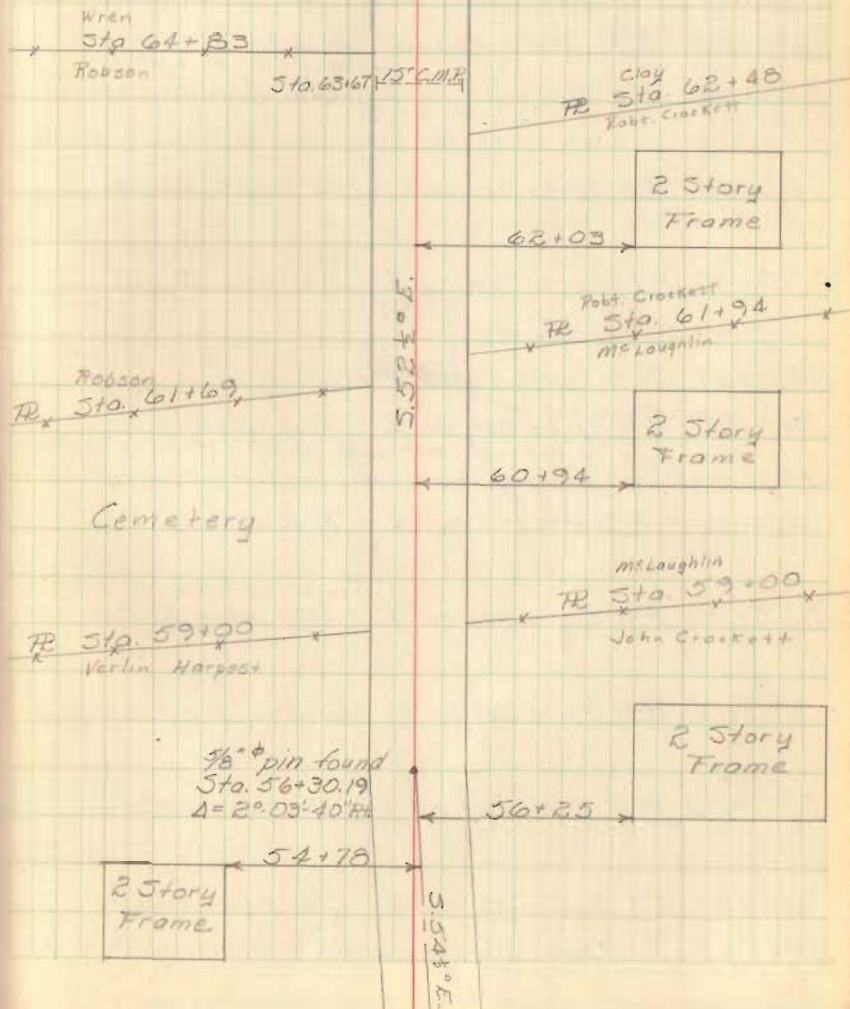 Wren
Sta 64+83
Robson
Sta. 63+67
15" C.M.P.
Clay
PL Sta. 62+48
Robt. Crockett
2 Story
Frame
62+03
S.52½°E.
Robt. Crockett
PL Sta. 61+94
McLoughlin
Robson
PL Sta. 61+69
2 Story
Frame
60+94
Cemetery
McLaughlin
PL Sta. 59+00
John Crockett
PL Sta. 59+00
Verlin Harpest
2 Story
Frame
5/8" ϕ pin found
Sta. 56+30.19
Δ= 2°-03'-40" Rt
56+25
54+78
2 Story
Frame
S.54½°E.